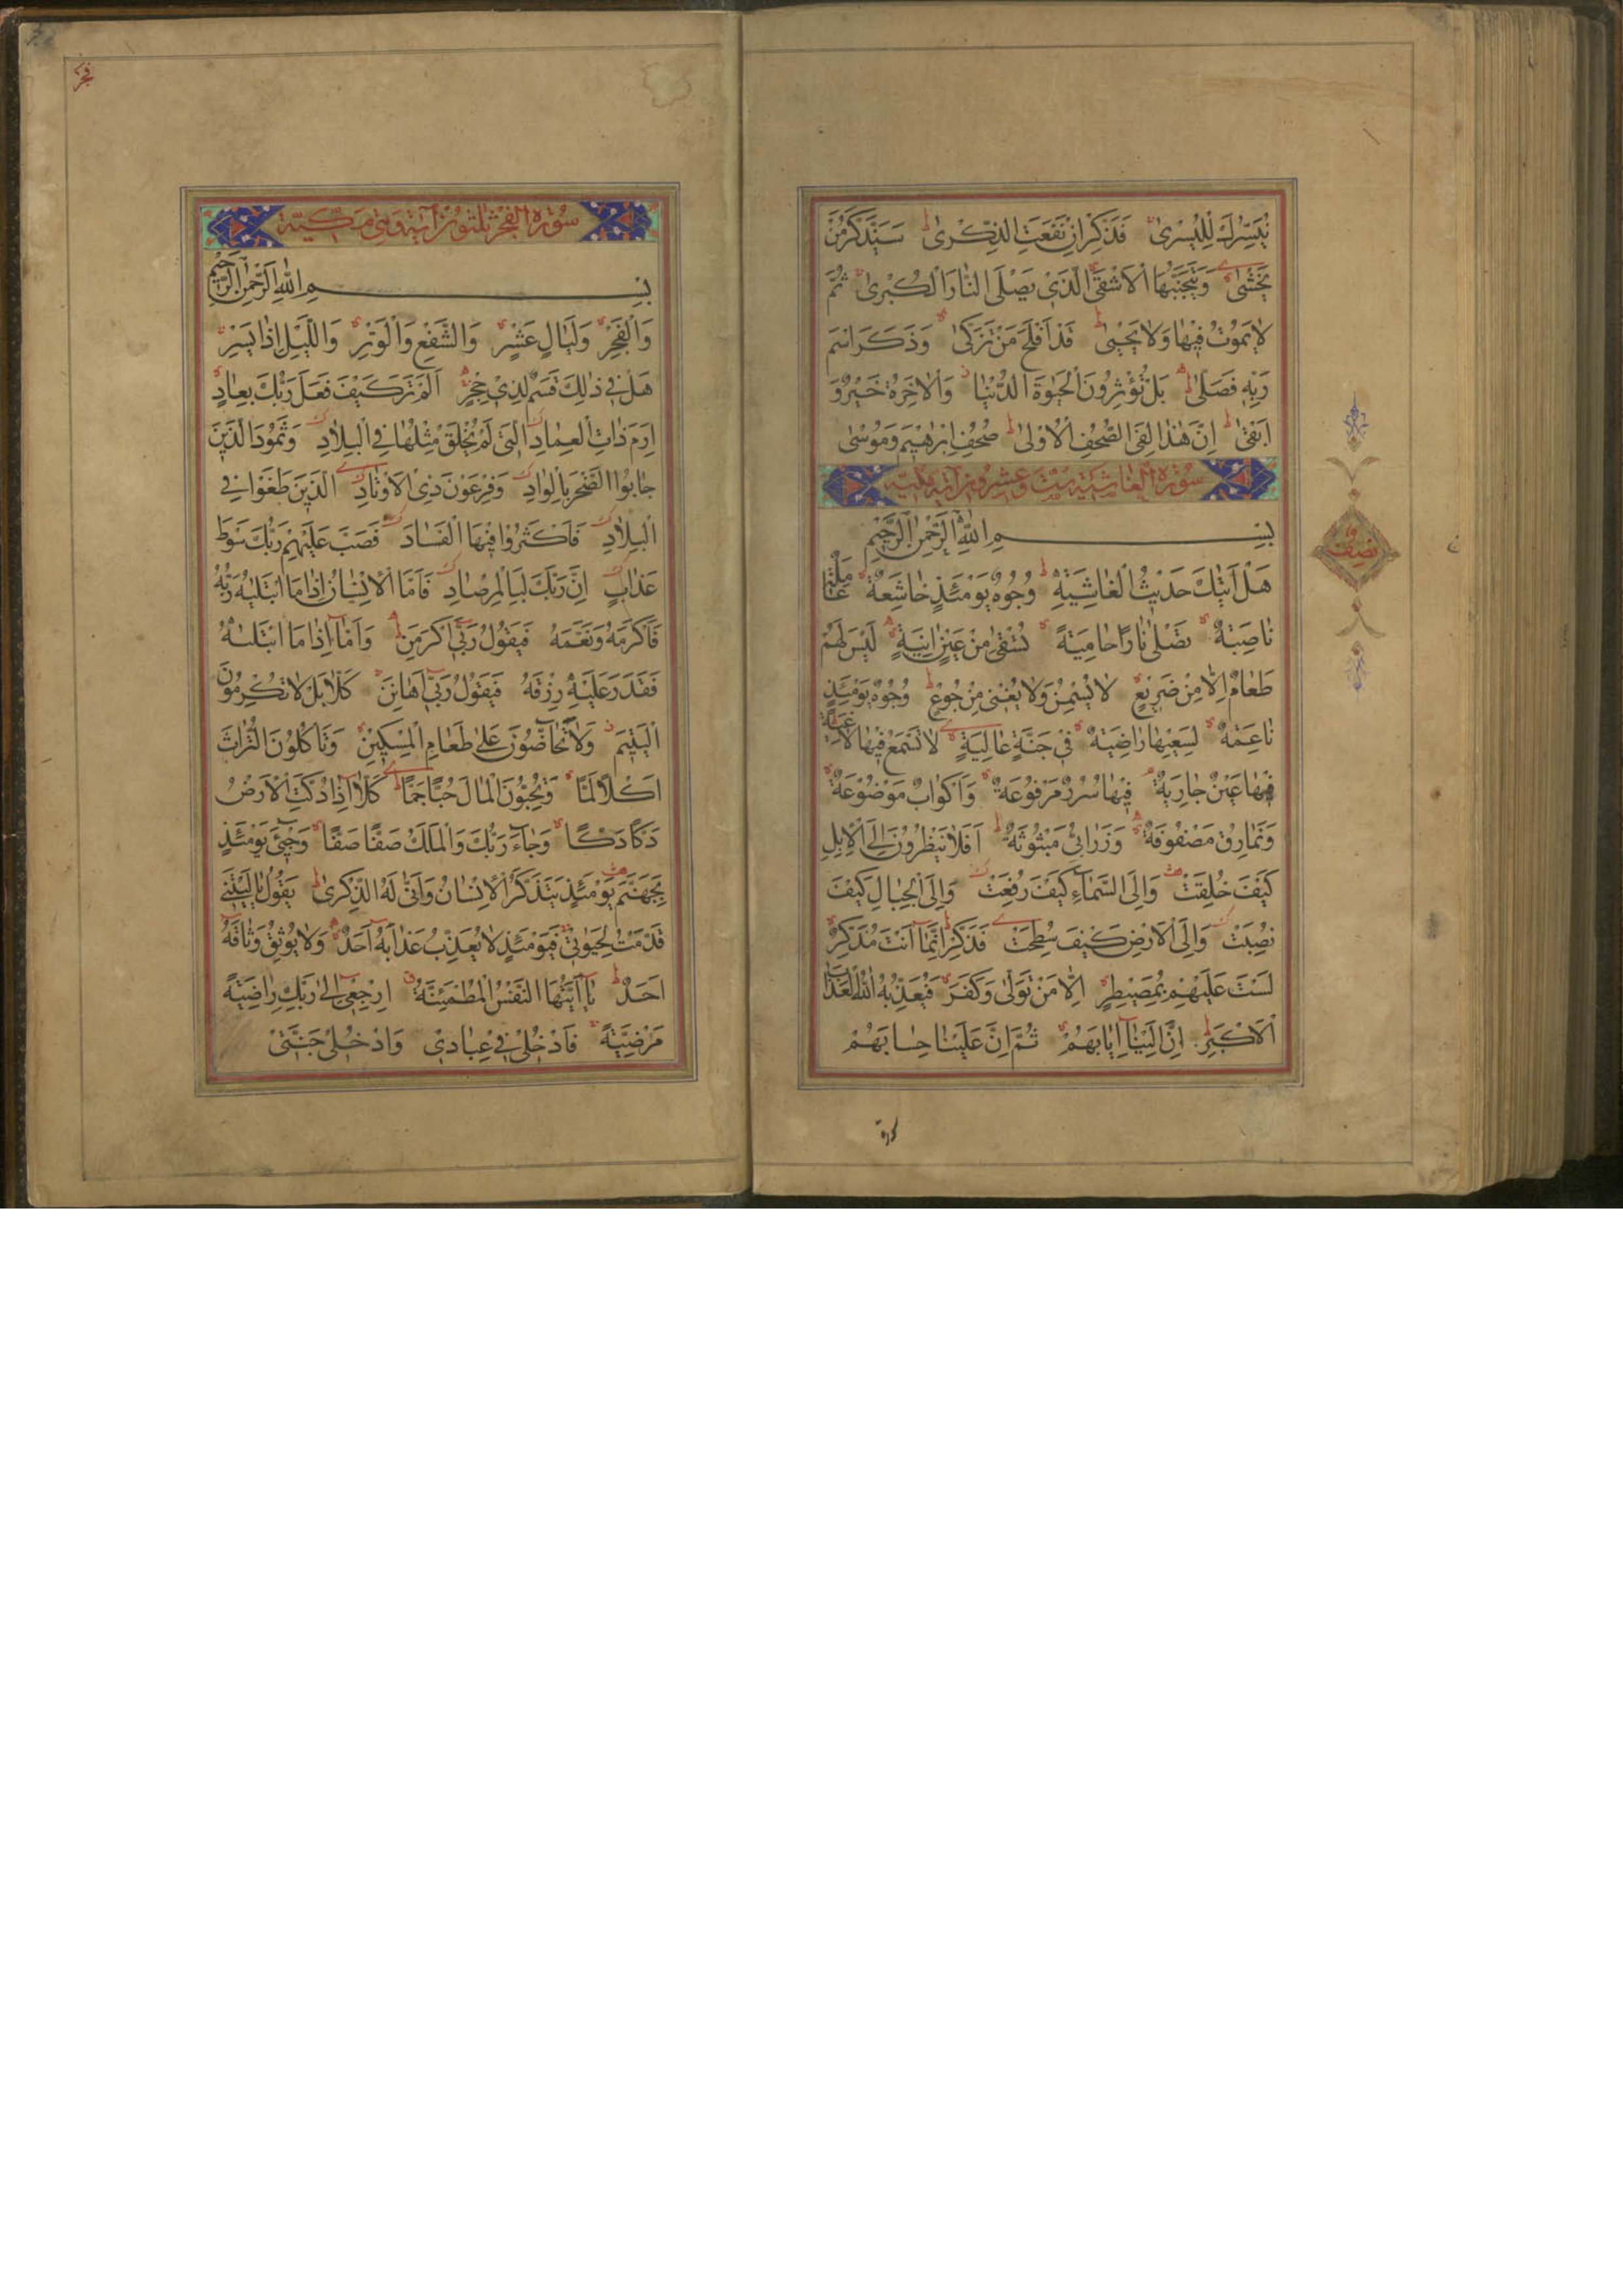 نُيَسِّرُكَ لِلْيُسْرىٰ فَذَكِّرْ اِنْ نَفَعَتِ الذِّكْرىٰ سَيَذَّكَّرُ مَنْ
يَخْشىٰ وَيَتَجَنَّبُهَا الْاَشْقَى الَّذِى يَصْلَى النَّارَ الْكُبْرىٰ ثُمَّ
لَا يَمُوتُ فِيهَا وَلَا يَحْيىٰ قَدْ اَفْلَحَ مَنْ تَزَكّىٰ وَذَكَرَ اسْمَ
رَبِّهِ فَصَلّىٰ بَلْ تُؤْثِرُونَ الْحَيٰوةَ الدُّنْيَا وَالْاٰخِرَةُ خَيْرٌ وَ
اَبْقىٰ اِنَّ هٰذَا لَفِى الصُّحُفِ الْاُولىٰ صُحُفِ اِبْرٰهِيمَ وَمُوسىٰ
سُورَة الْغَاشِيَة سِتّ وَعِشْرُونَ آيَة مَكِّيَّة
بِسْمِ اللّٰهِ الرَّحْمٰنِ الرَّحِيمِ
هَلْ اَتٰيكَ حَدِيثُ الْغَاشِيَةِ وُجُوهٌ يَوْمَئِذٍ خَاشِعَةٌ عَامِلَةٌ
نَاصِبَةٌ تَصْلىٰ نَارًا حَامِيَةً تُسْقىٰ مِنْ عَيْنٍ اٰنِيَةٍ لَيْسَ لَهُمْ
طَعَامٌ اِلَّا مِنْ ضَرِيعٍ لَا يُسْمِنُ وَلَا يُغْنِى مِنْ جُوعٍ وُجُوهٌ يَوْمَئِذٍ
نَاعِمَةٌ لِسَعْيِهَا رَاضِيَةٌ فِى جَنَّةٍ عَالِيَةٍ لَا تَسْمَعُ فِيهَا لَاغِيَةً
فِيهَا عَيْنٌ جَارِيَةٌ فِيهَا سُرُرٌ مَرْفُوعَةٌ وَاَكْوَابٌ مَوْضُوعَةٌ
وَنَمَارِقُ مَصْفُوفَةٌ وَزَرَابِىُّ مَبْثُوثَةٌ اَفَلَا يَنْظُرُونَ اِلَى الْاِبِلِ
كَيْفَ خُلِقَتْ وَاِلَى السَّمَاءِ كَيْفَ رُفِعَتْ وَاِلَى الْجِبَالِ كَيْفَ
نُصِبَتْ وَاِلَى الْاَرْضِ كَيْفَ سُطِحَتْ فَذَكِّرْ اِنَّمَا اَنْتَ مُذَكِّرٌ
لَسْتَ عَلَيْهِمْ بِمُصَيْطِرٍ اِلَّا مَنْ تَوَلّىٰ وَكَفَرَ فَيُعَذِّبُهُ اللّٰهُ الْعَذَابَ
الْاَكْبَرَ اِنَّ اِلَيْنَا اِيَابَهُمْ ثُمَّ اِنَّ عَلَيْنَا حِسَابَهُمْ
نصف
فجر
سُورَة الْفَجْر ثَلٰثُونَ آيَة وَهِىَ مَكِّيَّة
بِسْمِ اللّٰهِ الرَّحْمٰنِ الرَّحِيمِ
وَالْفَجْرِ وَلَيَالٍ عَشْرٍ وَالشَّفْعِ وَالْوَتْرِ وَاللَّيْلِ اِذَا يَسْرِ
هَلْ فِى ذٰلِكَ قَسَمٌ لِذِى حِجْرٍ اَلَمْ تَرَ كَيْفَ فَعَلَ رَبُّكَ بِعَادٍ
اِرَمَ ذَاتِ الْعِمَادِ الَّتِى لَمْ يُخْلَقْ مِثْلُهَا فِى الْبِلَادِ وَثَمُودَ الَّذِينَ
جَابُوا الصَّخْرَ بِالْوَادِ وَفِرْعَوْنَ ذِى الْاَوْتَادِ الَّذِينَ طَغَوْا فِى
الْبِلَادِ فَاَكْثَرُوا فِيهَا الْفَسَادَ فَصَبَّ عَلَيْهِمْ رَبُّكَ سَوْطَ
عَذَابٍ اِنَّ رَبَّكَ لَبِالْمِرْصَادِ فَاَمَّا الْاِنْسَانُ اِذَا مَا ابْتَلٰيهُ رَبُّهُ
فَاَكْرَمَهُ وَنَعَّمَهُ فَيَقُولُ رَبِّى اَكْرَمَنِ وَاَمَّا اِذَا مَا ابْتَلٰيهُ
فَقَدَرَ عَلَيْهِ رِزْقَهُ فَيَقُولُ رَبِّى اَهَانَنِ كَلَّا بَلْ لَا تُكْرِمُونَ
الْيَتِيمَ وَلَا تَحَاضُّونَ عَلىٰ طَعَامِ الْمِسْكِينِ وَتَاْكُلُونَ التُّرَاثَ
اَكْلًا لَمًّا وَتُحِبُّونَ الْمَالَ حُبًّا جَمًّا كَلَّا اِذَا دُكَّتِ الْاَرْضُ
دَكًّا دَكًّا وَجَاءَ رَبُّكَ وَالْمَلَكُ صَفًّا صَفًّا وَجِىْءَ يَوْمَئِذٍ
بِجَهَنَّمَ يَوْمَئِذٍ يَتَذَكَّرُ الْاِنْسَانُ وَاَنّىٰ لَهُ الذِّكْرىٰ يَقُولُ يَا لَيْتَنِى
قَدَّمْتُ لِحَيٰوتِى فَيَوْمَئِذٍ لَا يُعَذِّبُ عَذَابَهُ اَحَدٌ وَلَا يُوثِقُ وَثَاقَهُ
اَحَدٌ يَا اَيَّتُهَا النَّفْسُ الْمُطْمَئِنَّةُ ارْجِعِى اِلىٰ رَبِّكِ رَاضِيَةً
مَرْضِيَّةً فَادْخُلِى فِى عِبَادِى وَادْخُلِى جَنَّتِى